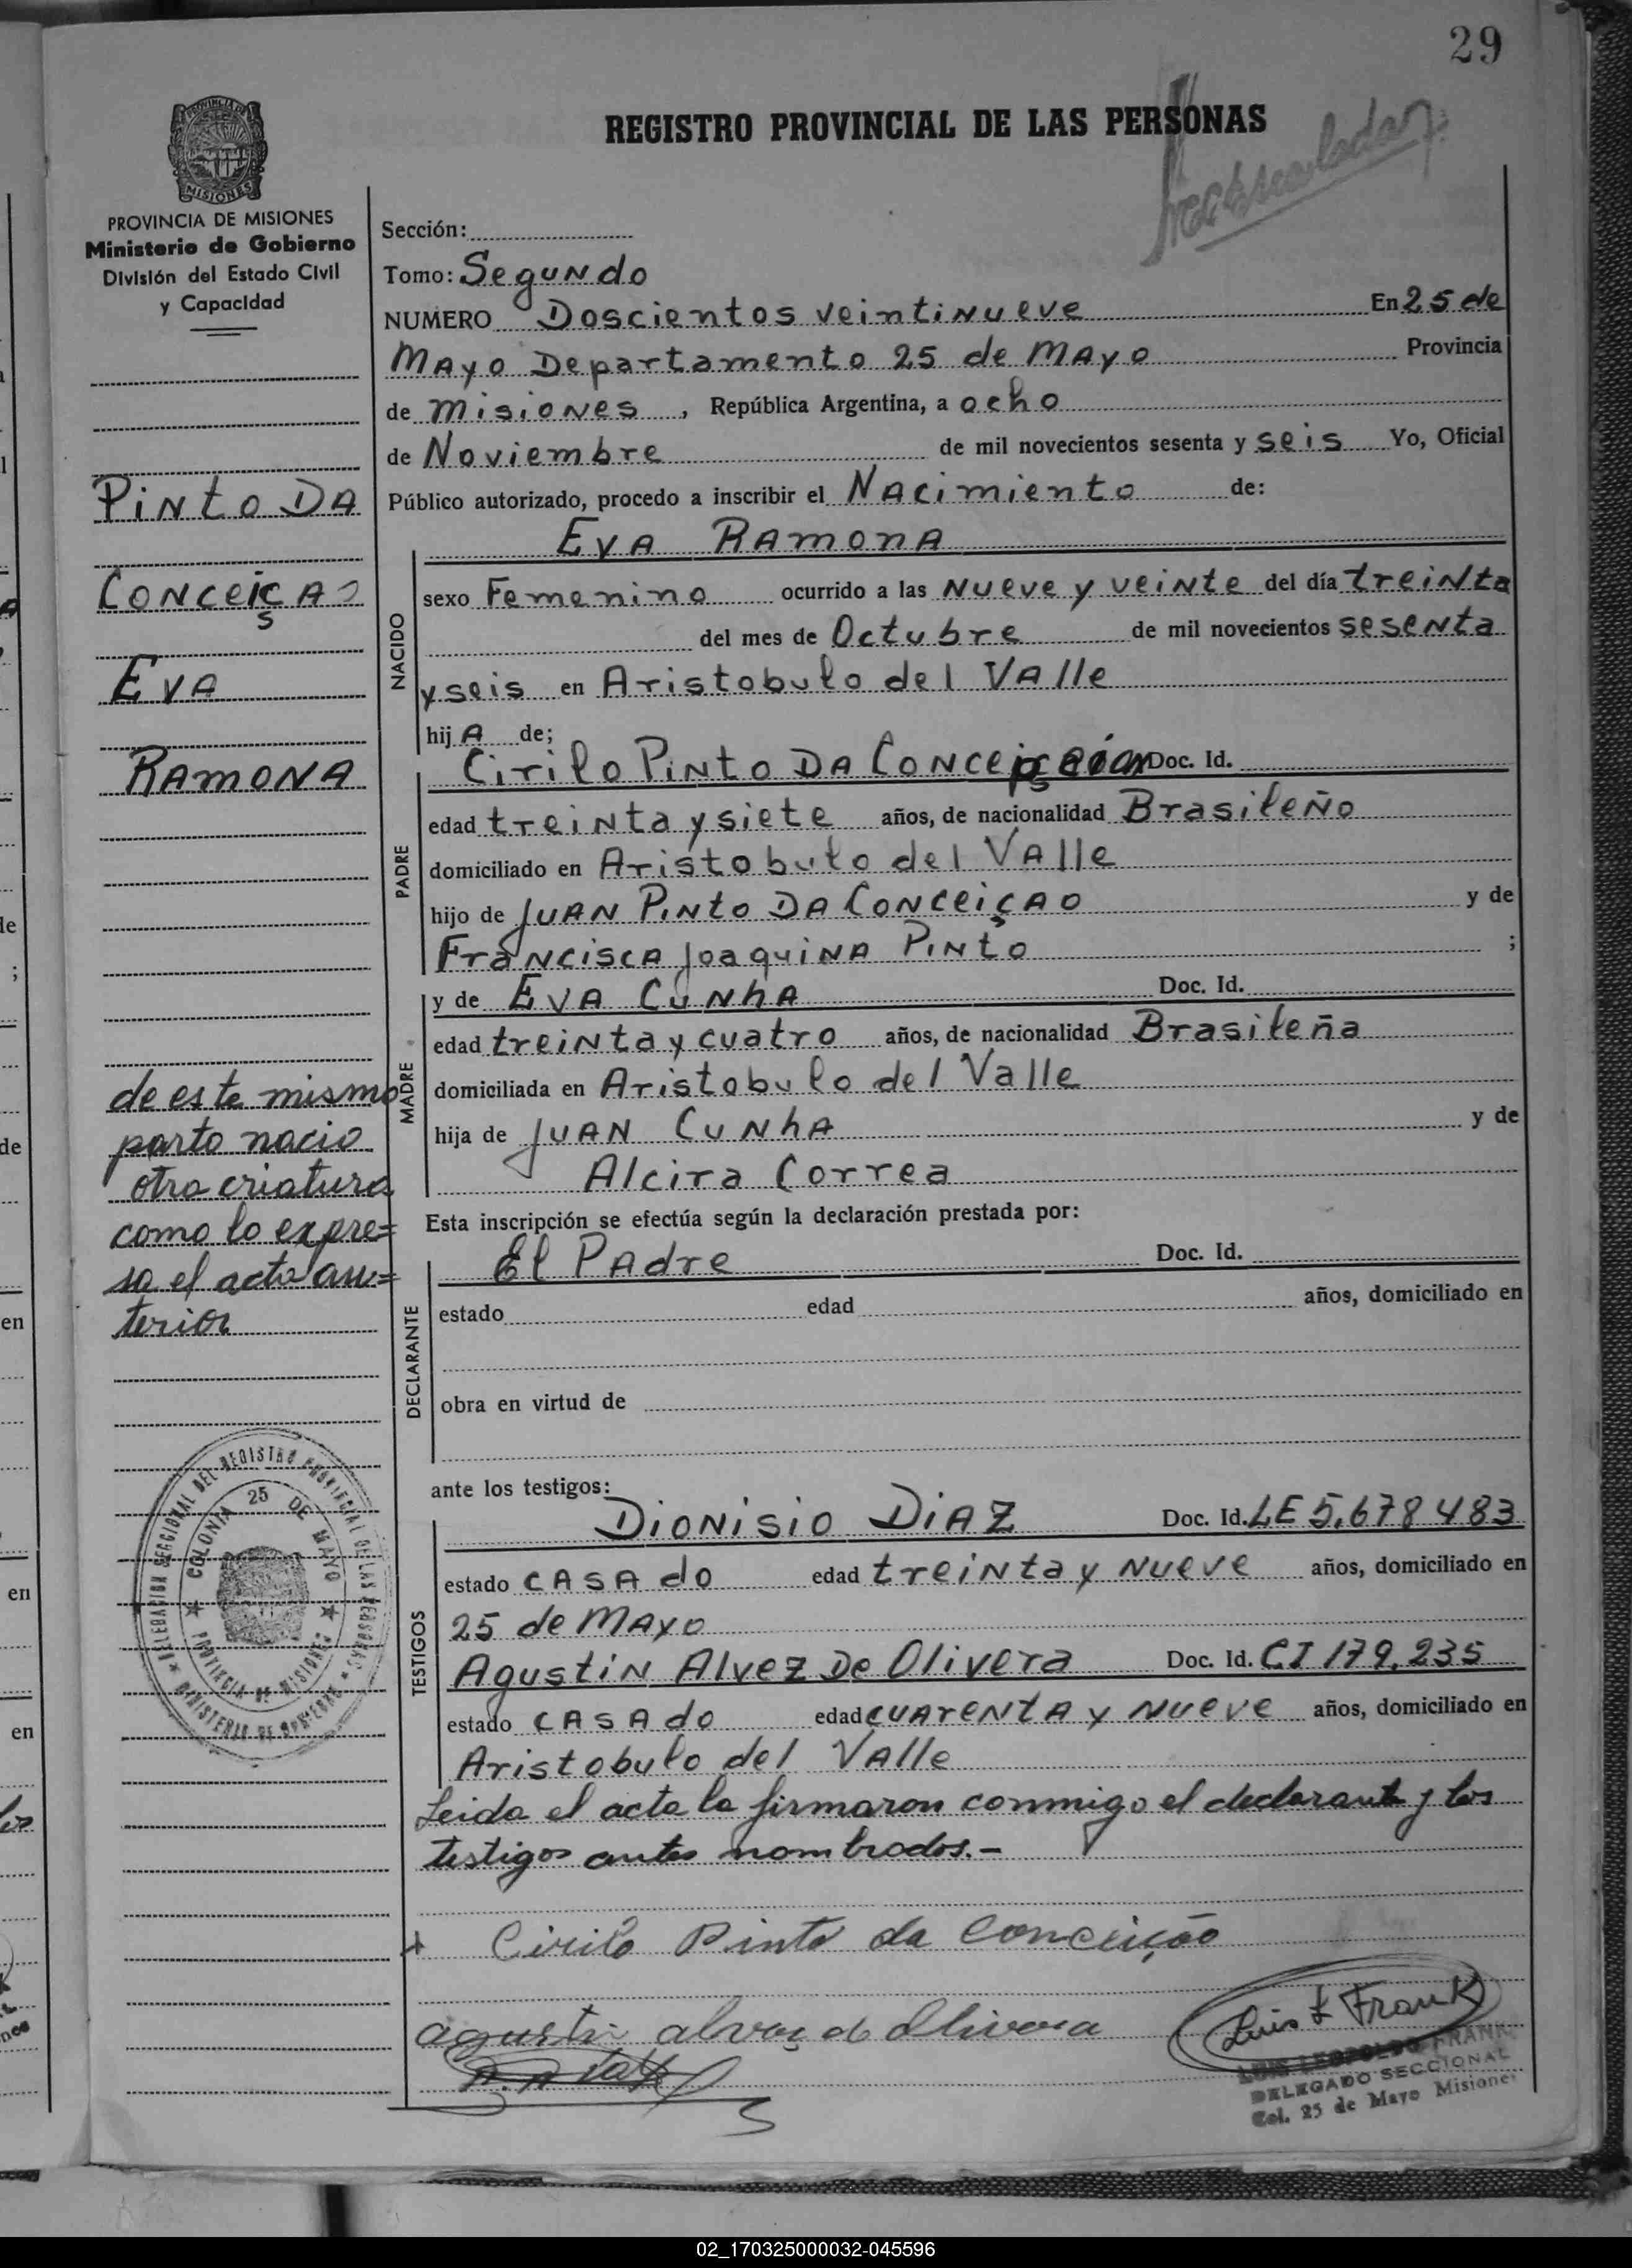 29
REGISTRO PROVINCIAL DE LAS PERSONAS
PROVINCIA DE MISIONES
Ministerio de Gobierno
División del Estado Civil
y Capacidad
Sección:
Tomo: Segundo
NUMERO Doscientos veintinueve En 25 de
Mayo Departamento 25 de Mayo Provincia
de Misiones, República Argentina, a ocho
de Noviembre de mil novecientos sesenta y seis Yo, Oficial
Público autorizado, procedo a inscribir el Nacimiento de:
Eva Ramona
PINTO DA
CONCEIÇAO
EVA
RAMONA
NACIDO
sexo Femenino ocurrido a las nueve y veinte del día treinta
del mes de Octubre de mil novecientos sesenta
y seis en Aristobulo del Valle
hija de;
PADRE
Cirilo Pinto Da Doc. Id.
edad treinta y siete años, de nacionalidad Brasileño
domiciliado en Aristobulo del Valle
hijo de Juan Pinto Da Conceiçao y de
Francisca Joaquina Pinto ;
MADRE
y de Eva Cunha Doc. Id.
edad treinta y cuatro años, de nacionalidad Brasileña
domiciliada en Aristobulo del Valle
hija de Juan Cunha y de
Alcira Correa
de este mismo
parto nacio
otra criatura
como lo expre=
sa el acta an=
terior
Esta inscripción se efectúa según la declaración prestada por:
DECLARANTE
El Padre Doc. Id.
estado edad años, domiciliado en
obra en virtud de
ante los testigos:
TESTIGOS
Dionisio Diaz Doc. Id. LE 5.678483
estado casado edad treinta y nueve años, domiciliado en
25 de Mayo
Agustin Alvez De Olivera Doc. Id. CI 179.235
estado casado edad cuarenta y nueve años, domiciliado en
Aristobulo del Valle
Leida el acta la firmaron conmigo el declarante y los
testigos antes nombrados.-
DELEGACION SECCIONAL DEL REGISTRO PROVINCIAL DE LAS PERSONAS
COLONIA 25 DE MAYO
PROVINCIA DE MISIONES
MINISTERIO DE GOBIERNO
Cirilo Pinto da Conceição
agustin alvez de Olivera
Luis L Frank
LUIS LEOPOLDO FRANK
DELEGADO SECCIONAL
Col. 25 de Mayo Misiones
02_170325000032-045596